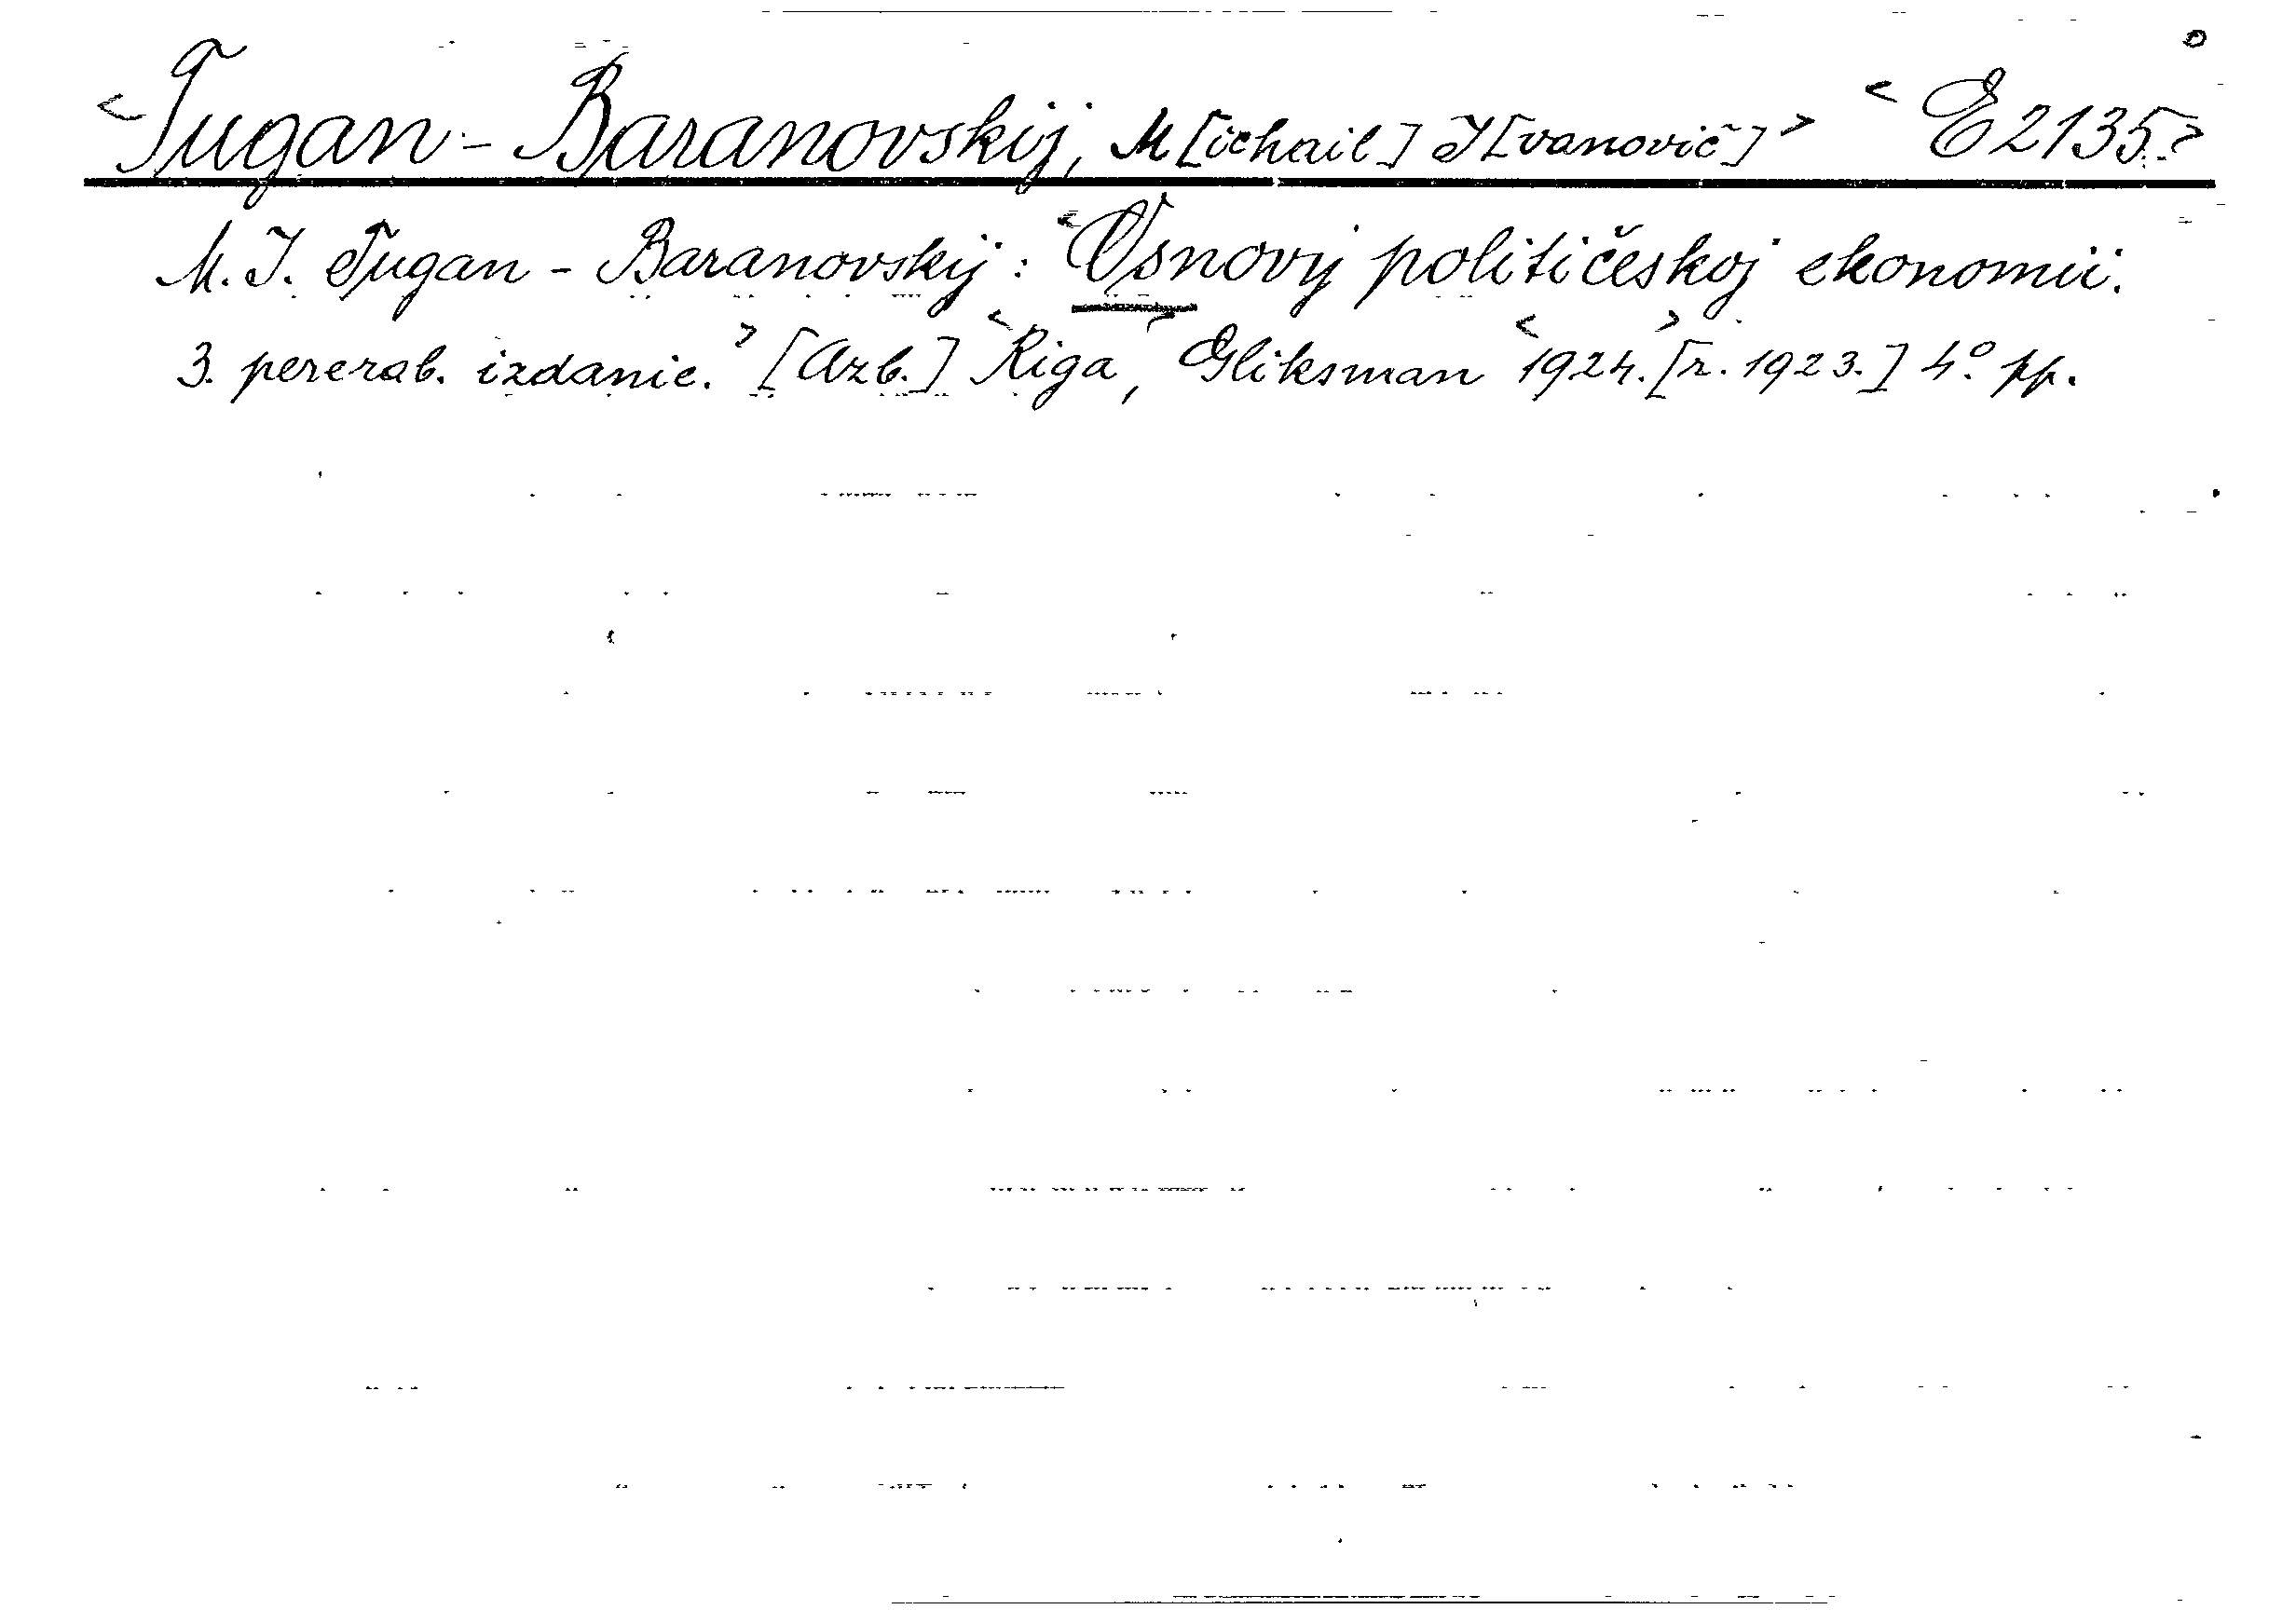 <Tugan-Baranovskij, M[ichail] I[vanovič]> <E2135.>
M. I. Tugan-Baranovskij: <Osnovy političeskoj ekonomii.
3. pererab. izdanie.> [Azb.] <Riga,> Gliksman <1924.> [r. 1923.] 4° pp.